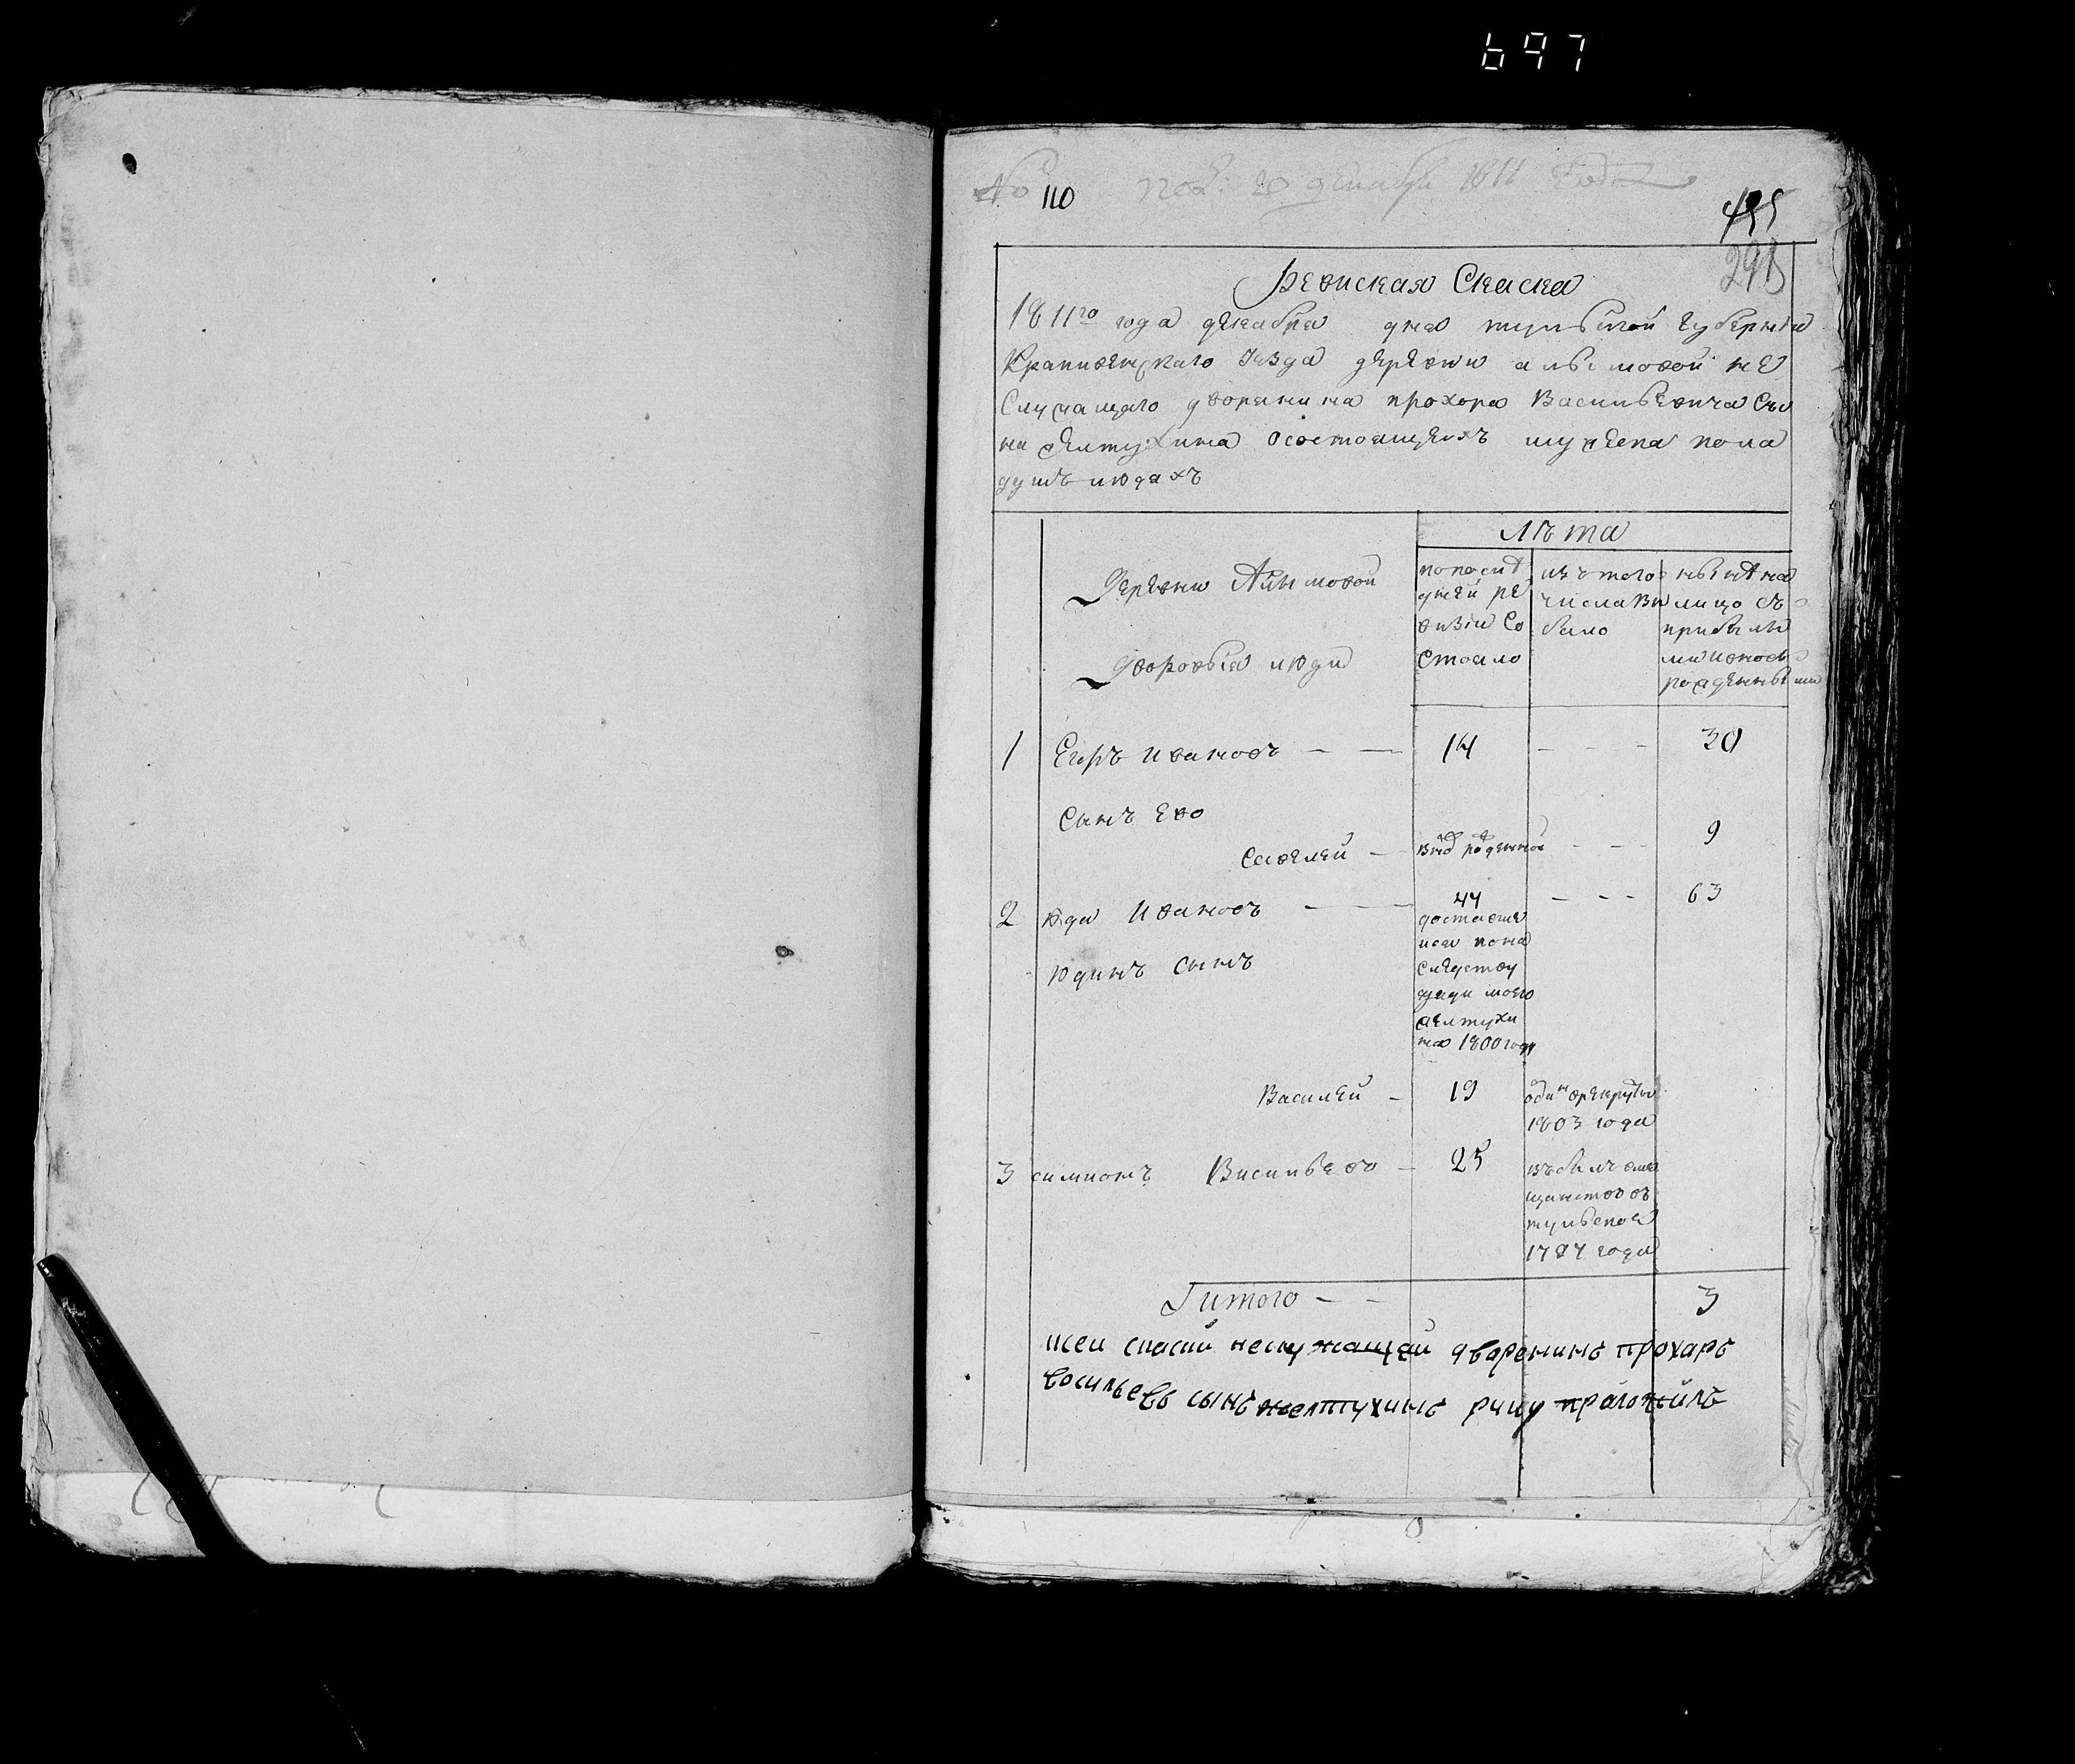 697
No 110 пол: 20 декабря 1811 года
495
291
Ревиская Скаска
1811го года декабря дня тульской губернии
Крапивенскаго уезда деревни альимовой не
служащаго дворенина прохора Васильевича сы
на желтухина осостоящихъ мужеска пола
душъ людахъ
Лѣта
Деревни Алымовой
Дворовыя люди
попослѣ
дней ре
визіи со
стояло
изътого
числа вы
было
нынѣ на
лицо съ
прибылы
ми ивновь
рожденными
1 Егоръ Ивановъ — — 14 - - - 30
Сынъ ево
Савелей — вновь рожденной - - - 9
2 юда Ивановъ — — 44 - - - 63
доставше
йся пона
следству
дяди моего
желтухи
на 1800 году
юдинъ сынъ
Василей - 19
1803 года
3 симионъ Васильево - 25
тульское
1787 года
Иитого - - 3
сей скаски неслужащей дваренинъ прохаръ
васильевъ сынъ желтухинъ руку праложилъ